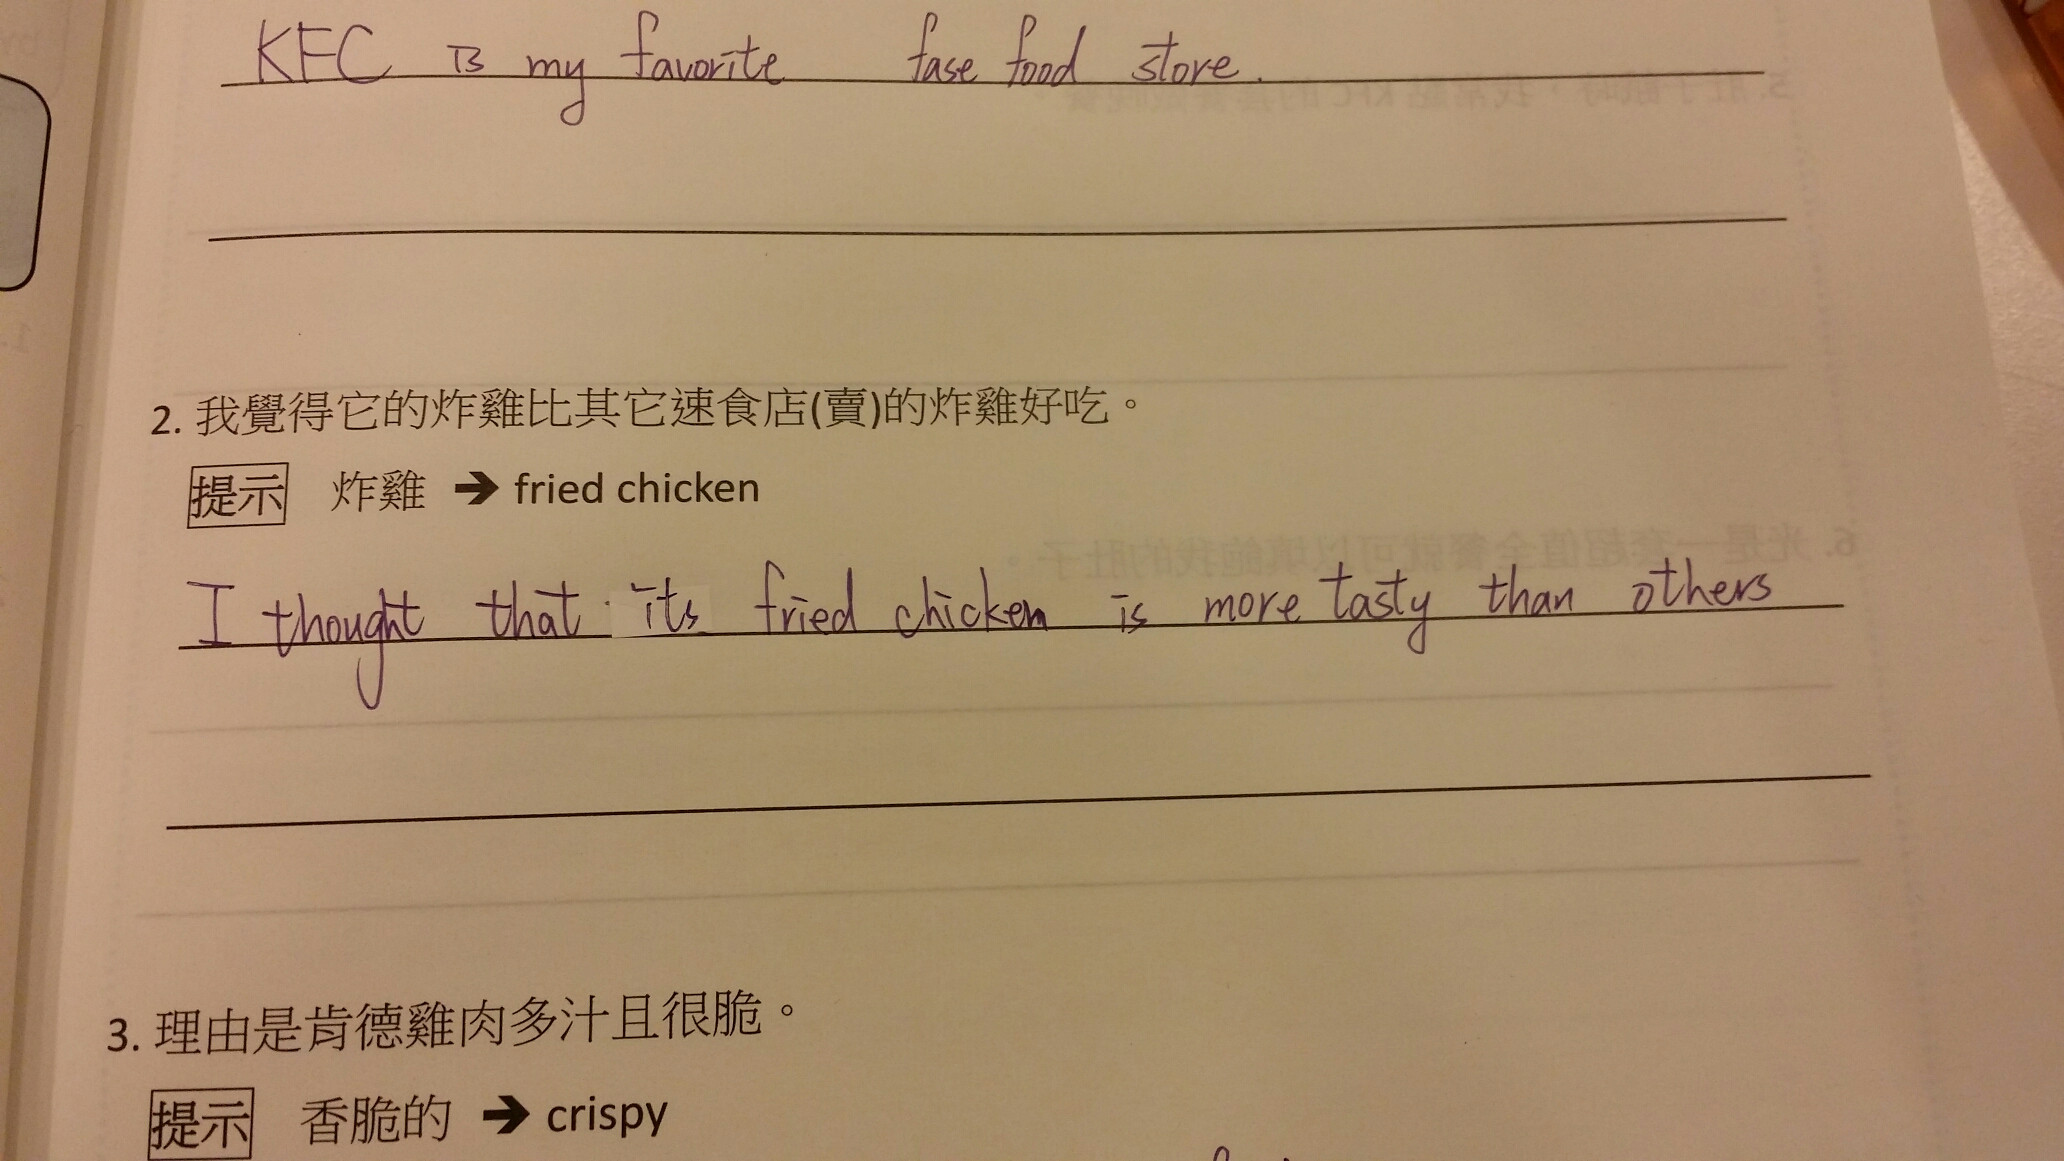 KFC is my favorite fase food store.
2. 我覺得它的炸雞比其它速食店(賣)的炸雞好吃。
提示 炸雞 ➔ fried chicken
I thought that its fried chicken is more tasty than others
3. 理由是肯德雞肉多汁且很脆。
提示 香脆的 ➔ crispy